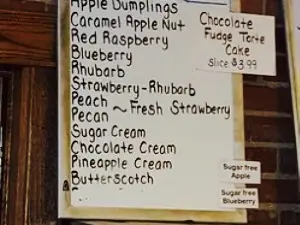 Apple Dumplings
Caramel Apple Nut
Red Raspberry
Blueberry
Rhubarb
Strawberry-Rhubarb
Peach ~ Fresh Strawberry
Pecan
Sugar Cream
Chocolate Cream
Pineapple Cream
Butterscotch
Chocolate
Fudge Torte
Cake
Slice $3.99
Sugar free
Apple
Sugar free
Blueberry